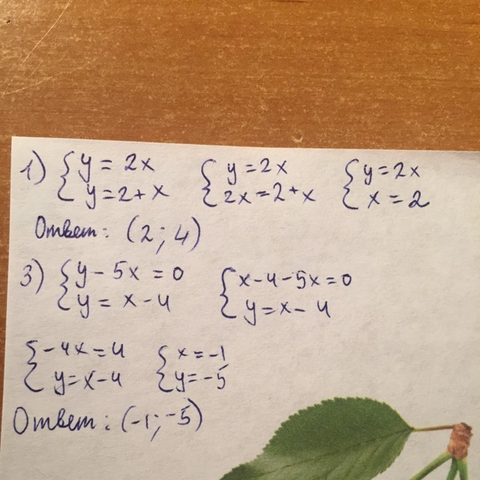 1) { y = 2x { y = 2x { y = 2x
{ y = 2 + x { 2x = 2 + x { x = 2
Ответ: (2; 4)
3) { y - 5x = 0 { x - 4 - 5x = 0
{ y = x - 4 { y = x - 4
{ -4x = 4 { x = -1
{ y = x - 4 { y = -5
Ответ: (-1; -5)